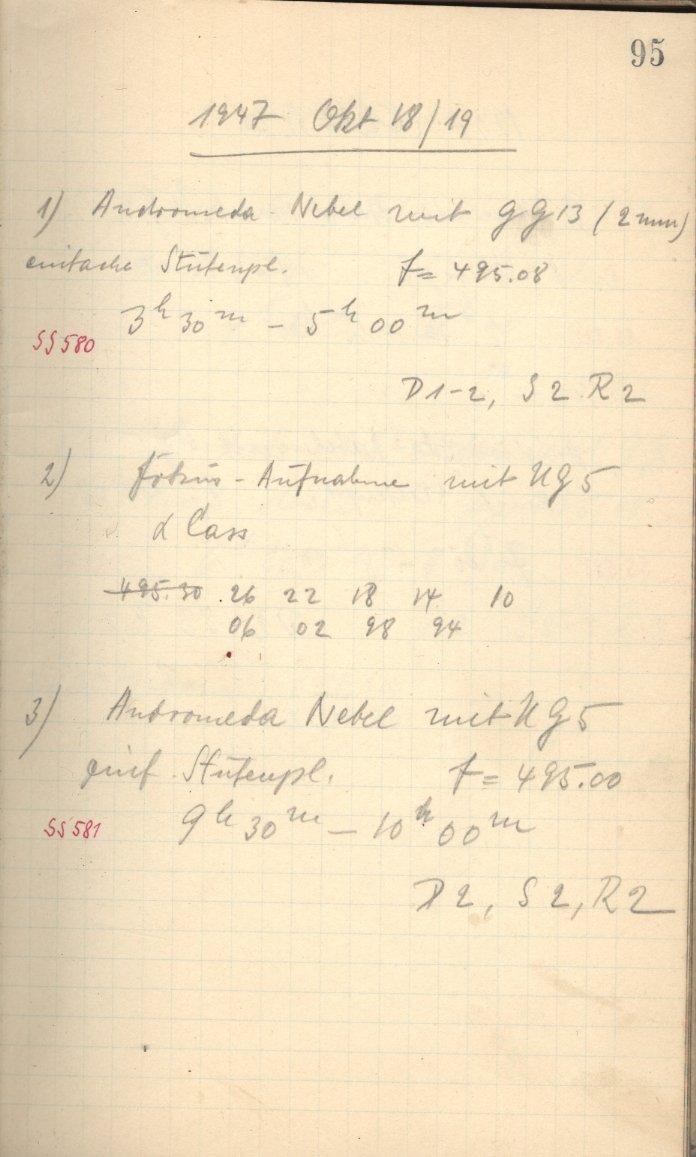 95
1947 Okt 18/19
1) Andromeda-Nebel mit GG13 (2mm)
einfache Stufenpl. f = 495.08
3h 30m - 5h 00m
SS580
D1-2, S2 R2
2) Fokus-Aufnahme mit UG5
α Cass
495.30 .26 22 18 14 10
06 02 98 94
3) Andromeda Nebel mit UG5
einf. Stufenpl. f = 495.00
SS581 9h 30m - 10h 00m
D2, S2, R2